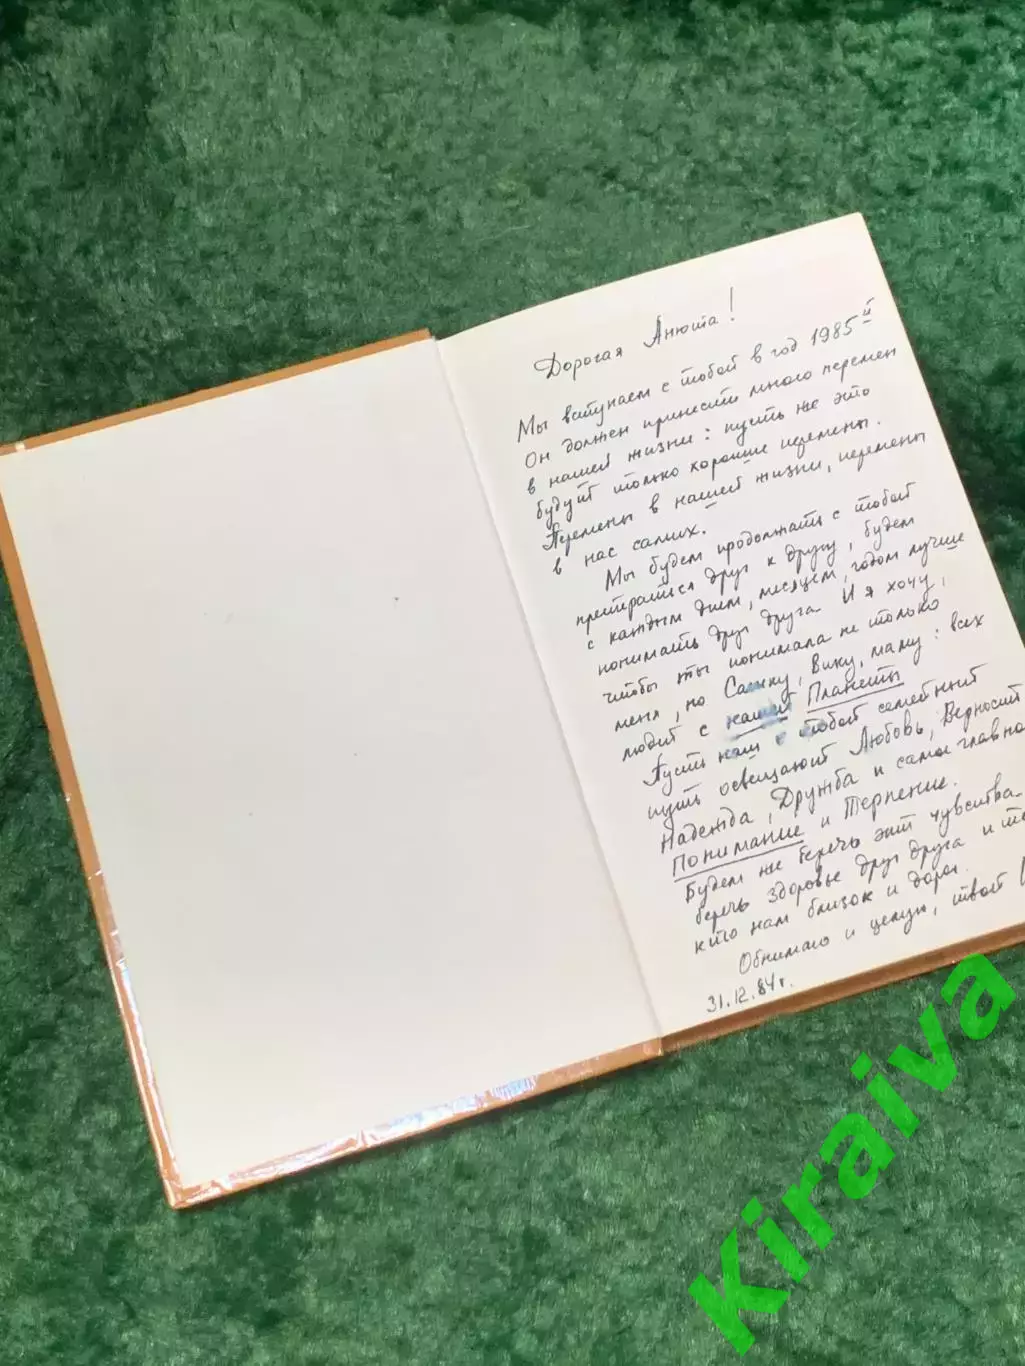 Дорогая Анюта!
Мы вступаем с тобой в год 1985й
Он должен принести много перемен
в нашей жизни: пусть же это
будут только хорошие перемены.
Перемены в нашей жизни, перемены
в нас самих.
Мы будем продолжать с тобой
притираться друг к другу, будем
с каждым днем, месяцем, годом лучше
понимать друг друга. И я хочу,
чтобы ты понимала не только
меня, но Сашку, Вику, маму: всех
людей с нашей Планеты
Пусть наш с тобой семейный
путь освещают Любовь, Верность
Надежда, Дружба и самое главное
Понимание и Терпение.
Будем же беречь эти чувства
беречь здоровье друг друга и
кто нам близок и дорог.
Обнимаю и целую, твой
31.12.84г.
Kiraiva